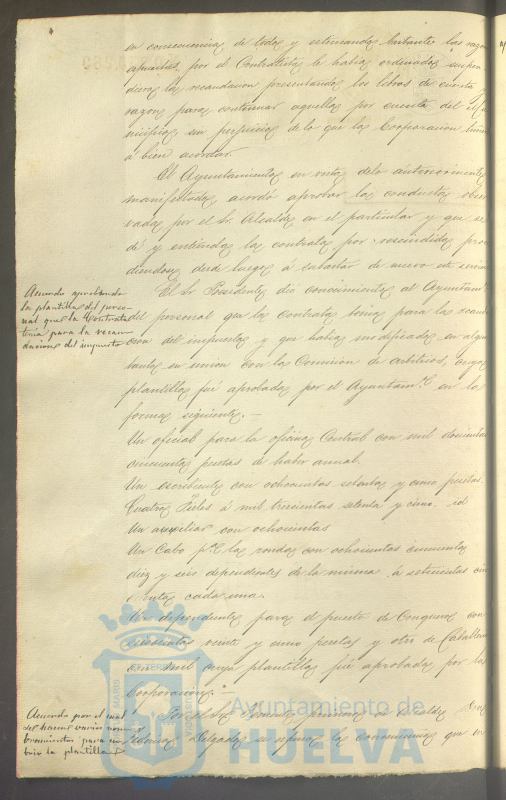 en consecuencia de todo y estimando bastante las razones
apuntadas por el Contratista le había ordenado suspen
diera la recaudacion presentando los libros de cuenta y
razon para continuar aquella por cuenta del
nicipio sin perjuicio de lo que la Corporacion tuviera
á bien acordar.
El Ayuntamiento en vista delo anteriormente
manifestado acordó aprobar la conducta obser
vada por el Sr. Alcalde en el particular y que se
dé y entienda la contrata por rescindida pro
diendose desde luego á subastar de nuevo el servicio
Acuerdo aprobando
la plantilla del perso-
nal que la Contrata
tenía para la recau-
dacion del impuesto
El Sr. Presidente dió conocimiento al Ayuntam
del personal que la contrata tenia para la recau
cion del impuesto y que habia modificado en
en union con la Comision de arbitrios, cuya
plantilla fué aprobada por el Ayuntam.to en la
forma siguiente.—
Un oficial para la oficina Central con mil doscientas
cincuenta pesetas de haber anual.
Un escribiente con ochocientas setenta y cinco pesetas.
Cuatro Fieles á mil trescientas setenta y cinco. id
Un auxiliar con ochocientas
Un Cabo p.a la ronda con ochocientas cincuenta
diez y seis dependientes de la misma á setecientas cin
cuenta cada una.
Un dependiente para el puerto de Conquero con
veinte y cinco pesetas y otro de Caballeria
con mil cuya plantilla fué aprobada por la
Corporacion.—
Acuerdo por el cual
se hacen varios nom
bramientos para cu
brir la plantilla
Por el Sr. Gonzalez
Delgado se expuso la conveniencia que
Ayuntamiento de
HUELVA